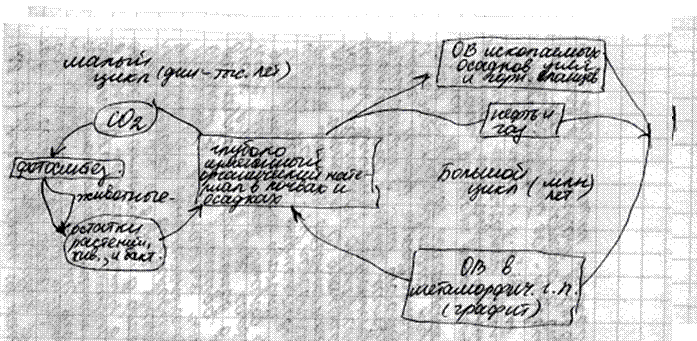 малый
цикл (дни-тыс. лет)
CO2
фотосинтез.
животные-
остатки
растений,
жив., и бакт.
глубоко
измененный
органический мате-
риал в почвах и
осадках
ОВ ископаемых
осадков угля
и горн. сланцев
нефть и
газ
Большой
цикл (млн
лет)
ОВ в
метаморфич. г.п.
(графит)